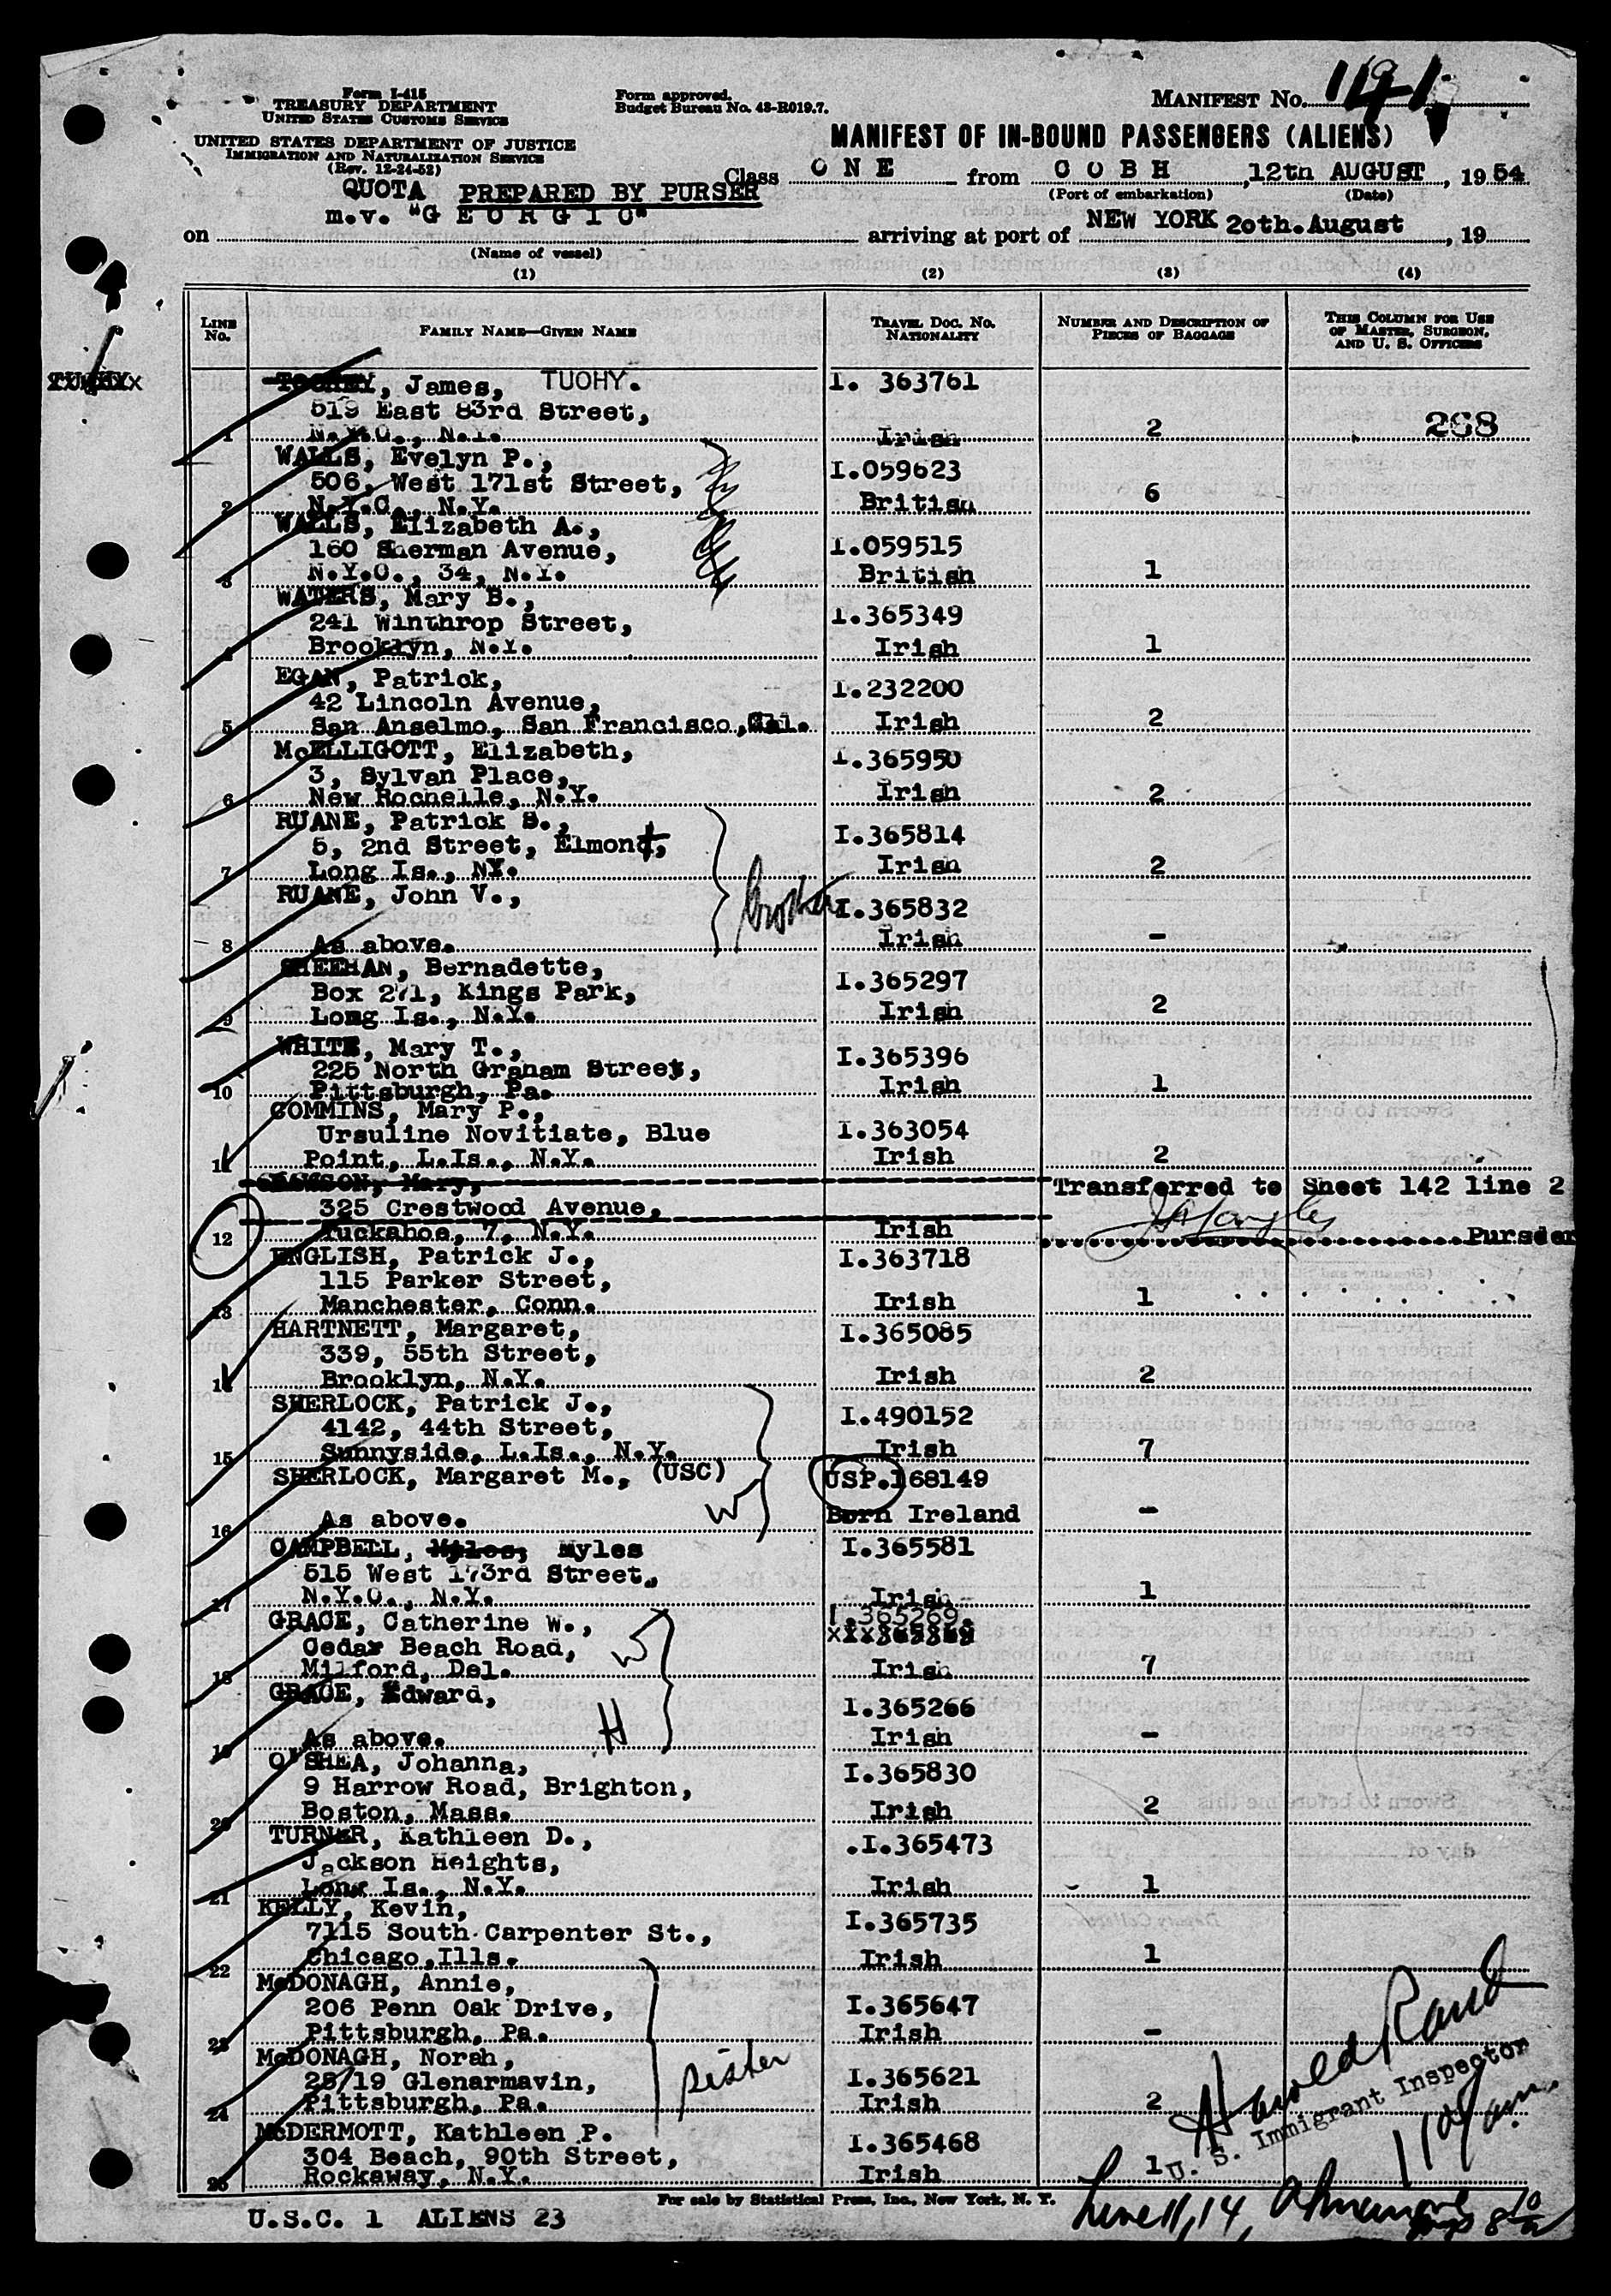 Form I-415
TREASURY DEPARTMENT
UNITED STATES CUSTOMS SERVICE
UNITED STATES DEPARTMENT OF JUSTICE
IMMIGRATION AND NATURALIZATION SERVICE
(Rev. 12-24-52)
Form approved.
Budget Bureau No. 43-R019.7.
MANIFEST No. 141
MANIFEST OF IN-BOUND PASSENGERS (ALIENS)
QUOTA PREPARED BY PURSER
Class O N E from C O B H, 12th AUGUST, 19 54
(Port of embarkation) (Date)
m.v. "G E O R G I C"
on arriving at port of NEW YORK 20th.August, 19
(Name of vessel)
(1) (2) (3) (4)
LINE No. FAMILY NAME—GIVEN NAME TRAVEL DOC. No. NATIONALITY NUMBER AND DESCRIPTION OF PIECES OF BAGGAGE THIS COLUMN FOR USE OF MASTER, SURGEON, AND U. S. OFFICERS
TOOHEY, James, TUOHY. I. 363761
519 East 83rd Street,
1 N.Y.C., N.Y. Irish 2 268
WALLS, Evelyn P., I.059623
506, West 171st Street,
2 N.Y.C., N.Y. British 6
WALLS, Elizabeth A.,
160 Sherman Avenue, I.059515
3 N.Y.C., 34, N.Y. British 1
WATERS, Mary B., I.365349
241 Winthrop Street,
4 Brooklyn, N.Y. Irish 1
EGAN, Patrick, I.232200
42 Lincoln Avenue,
5 San Anselmo, San Francisco, Cal. Irish 2
McELLIGOTT, Elizabeth, I.365950
3, Sylvan Place,
6 New Rochelle, N.Y. Irish 2
RUANE, Patrick S., I.365814
5, 2nd Street, Elmont,
7 Long Is., NY. Irish 2
RUANE, John V., I.365832
8 As above. Irish -
SHEEHAN, Bernadette, I.365297
Box 271, Kings Park,
9 Long Is., N.Y. Irish 2
WHITE, Mary T., I.365396
225 North Graham Street,
10 Pittsburgh, Pa. Irish 1
COMMINS, Mary P.,
Ursuline Novitiate, Blue I.363054
11 Point, L.Is., N.Y. Irish 2
Mary, Transferred to Sheet 142 line 2
325 Crestwood Avenue,
12 Tuckahoe, 7, N.Y. Irish Purser
ENGLISH, Patrick J., I.363718
115 Parker Street,
13 Manchester, Conn. Irish 1
HARTNETT, Margaret, I.365085
339, 55th Street,
14 Brooklyn, N.Y. Irish 2
SHERLOCK, Patrick J., I.490152
4142, 44th Street,
15 Sunnyside, L.Is., N.Y. Irish 7
SHERLOCK, Margaret M., (USC) USP.168149
W
16 As above. Born Ireland -
CAMPBELL, Myles, Myles I.365581
515 West 173rd Street,
17 N.Y.C., N.Y. Irish 1
GRACE, Catherine W., I.365269.
Cedar Beach Road, W
18 Milford, Del. Irish 7
GRACE, Edward, I.365266
H
19 As above. Irish -
O'SHEA, Johanna, I.365830
9 Harrow Road, Brighton,
20 Boston, Mass. Irish 2
TURNER, Kathleen D., .I.365473
Jackson Heights,
21 Long Is., N.Y. Irish 1
KELLY, Kevin, I.365735
7115 South Carpenter St.,
22 Chicago, Ills. Irish 1
McDONAGH, Annie, I.365647
206 Penn Oak Drive,
23 Pittsburgh, Pa. Irish -
McDONAGH, Norah, sister I.365621
25/19 Glenarmavin,
24 Pittsburgh, Pa. Irish 2
McDERMOTT, Kathleen P. I.365468
304 Beach, 90th Street,
25 Rockaway, N.Y. Irish 1
Harold Rand
U. S. Immigrant Inspector
For sale by Statistical Press, Inc., New York, N. Y.
U.S.C. 1 ALIENS 23
Line 11, 14,